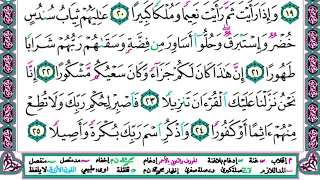 ١٩ وَإِذَا رَأَيْتَ ثَمَّ رَأَيْتَ نَعِيمًا وَمُلْكًا كَبِيرًا ٢٠ عَالِيَهُمْ ثِيَابُ سُندُسٍ
خُضْرٌ وَإِسْتَبْرَقٌ وَحُلُّوا أَسَاوِرَ مِن فِضَّةٍ وَسَقَاهُمْ رَبُّهُمْ شَرَابًا
طَهُورًا ٢١ إِنَّ هَذَا كَانَ لَكُمْ جَزَاءً وَكَانَ سَعْيُكُم مَّشْكُورًا ٢٢
إِنَّا نَحْنُ نَزَّلْنَا عَلَيْكَ الْقُرْآنَ تَنزِيلًا ٢٣ فَاصْبِرْ لِحُكْمِ رَبِّكَ وَلَا تُطِعْ
مِنْهُمْ آثِمًا أَوْ كَفُورًا ٢٤ وَاذْكُرِ اسْمَ رَبِّكَ بُكْرَةً وَأَصِيلًا ٢٥